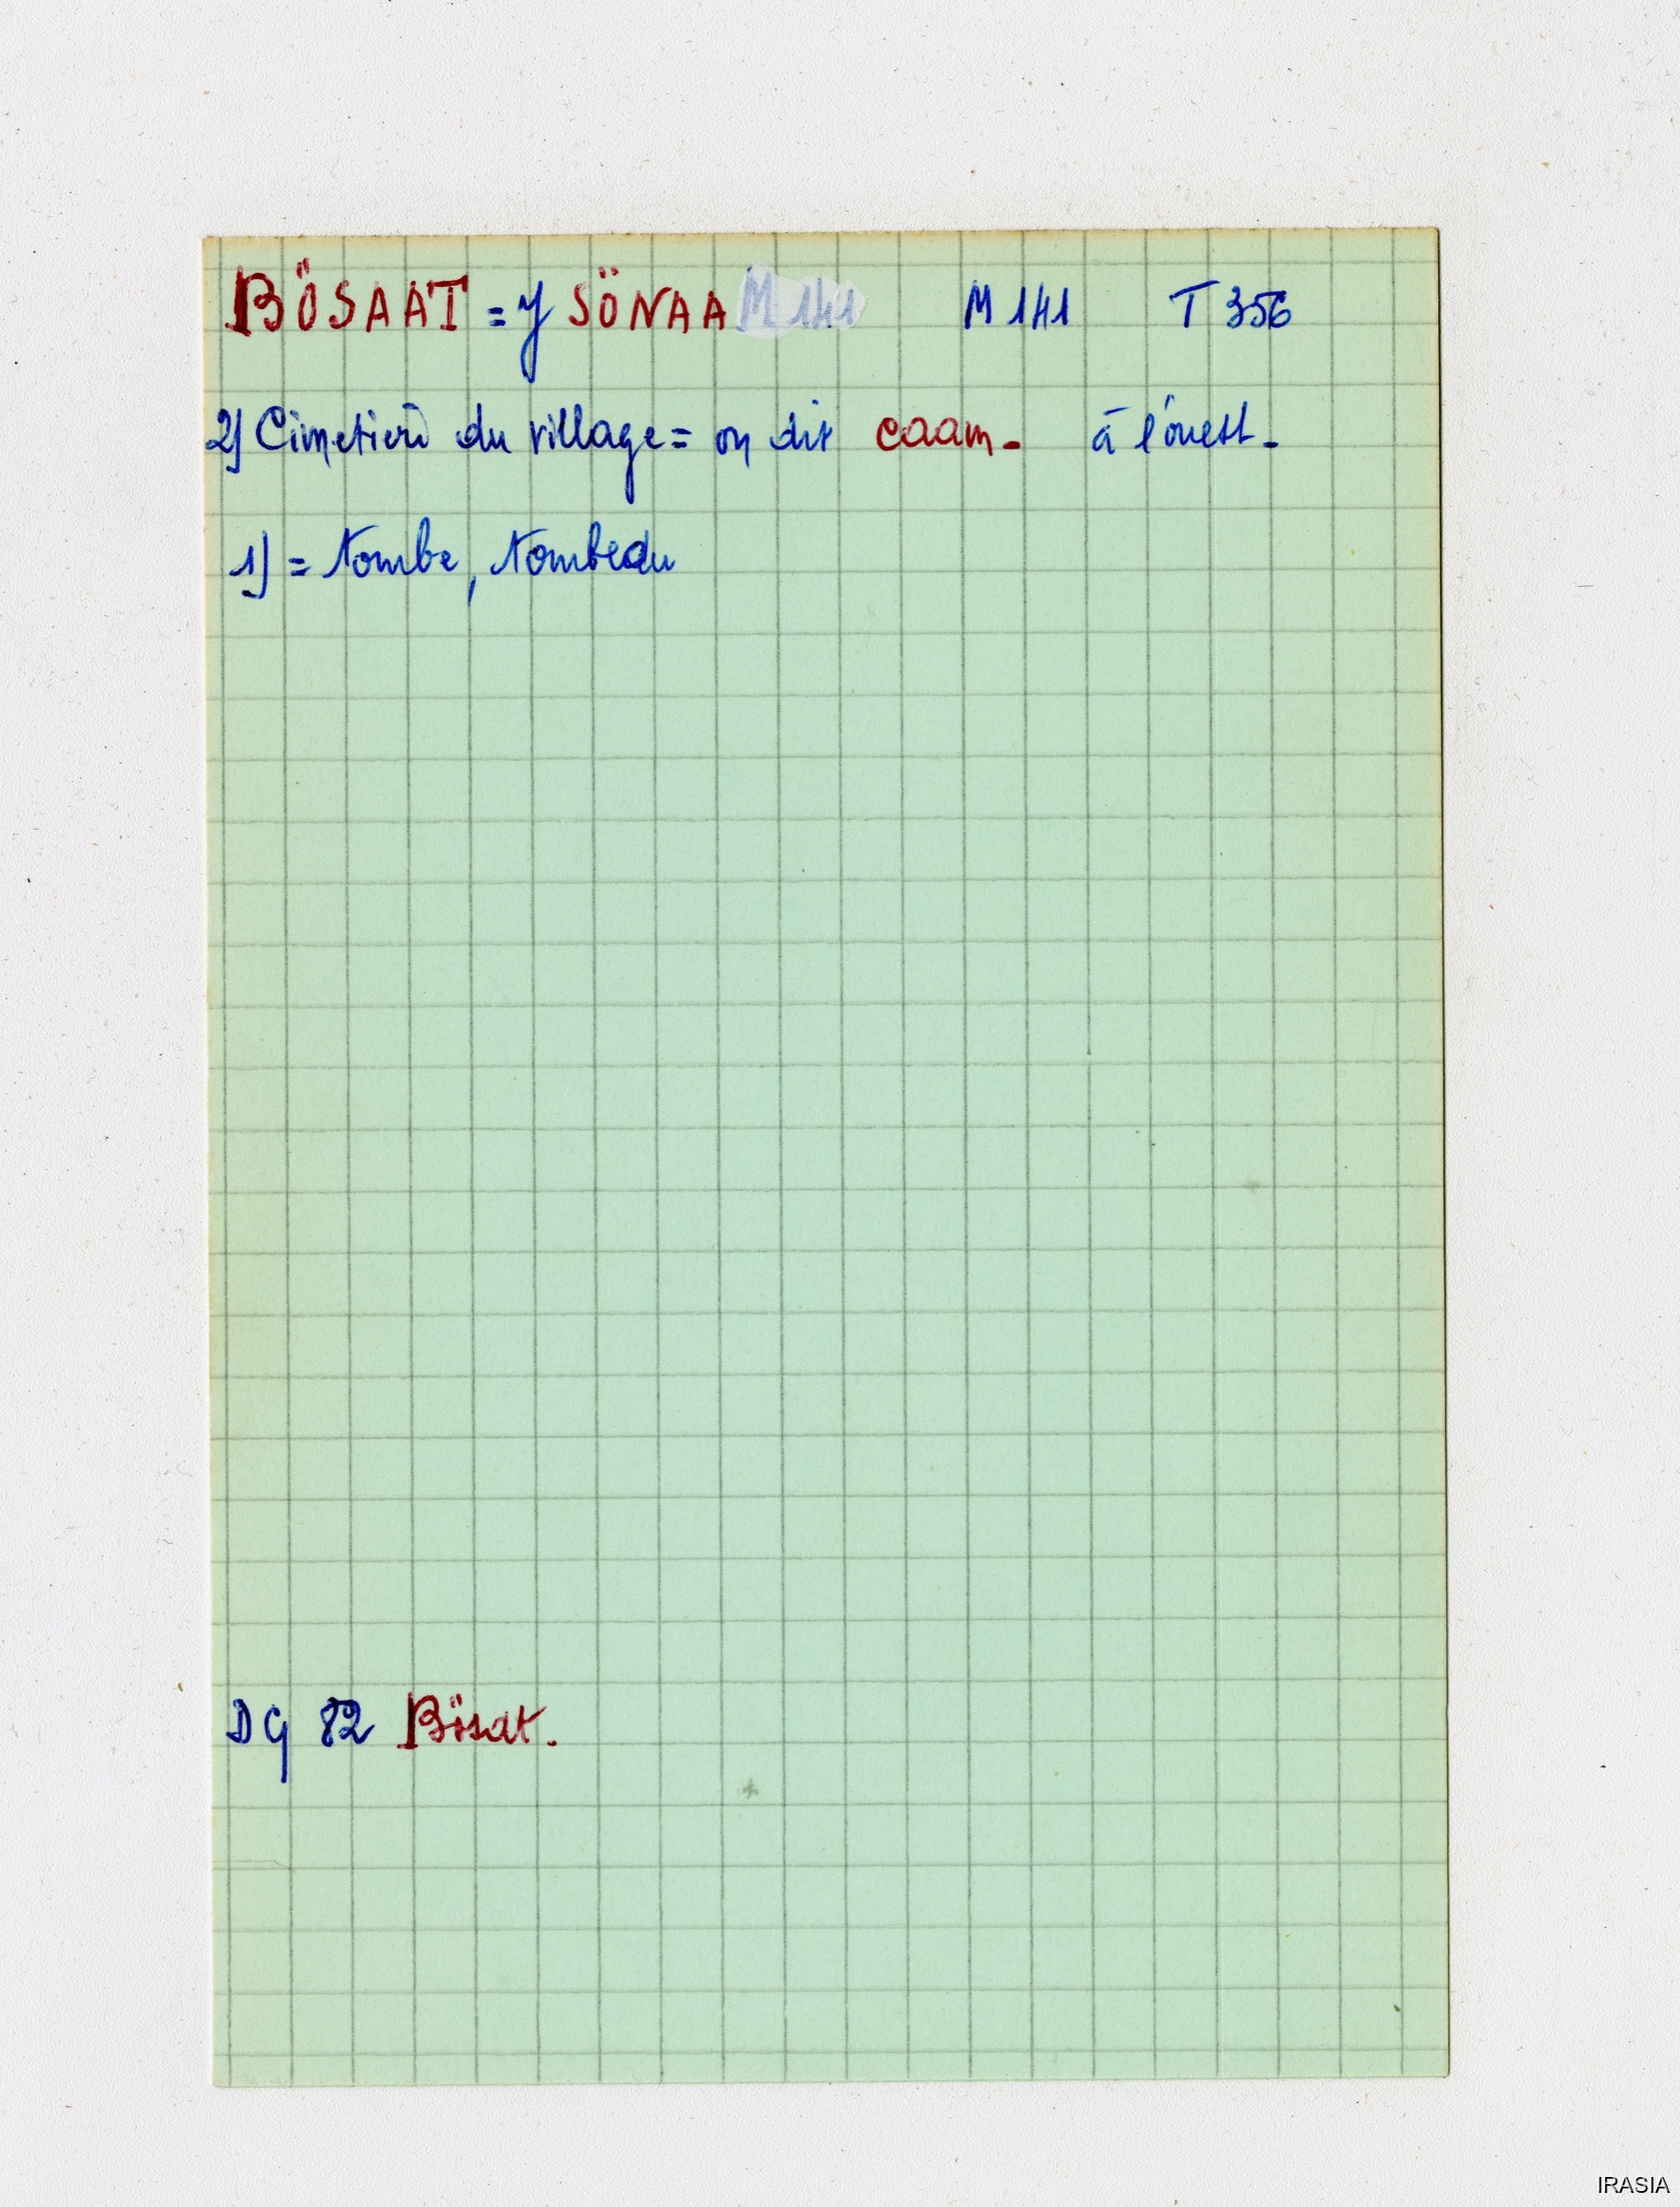 BÖSAAT = y SÖNAA M 141 M 141 T 356
2) Cimetière du village = on dit caam - à l'ouest -
1) = tombe, tombeau
DG 82 Bösat.
IRASIA